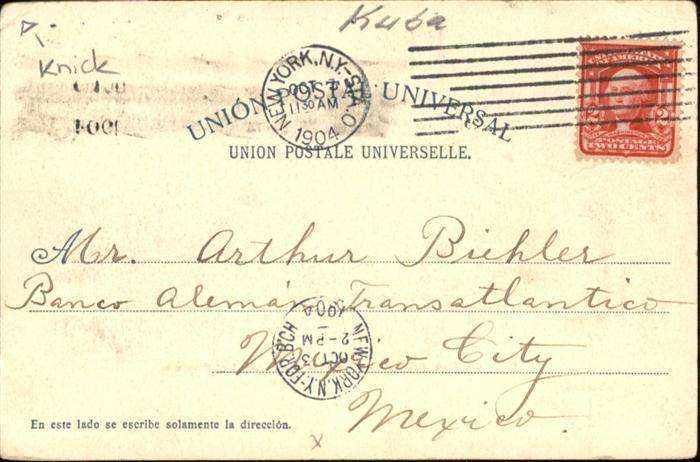 Kuba
Knick
NEW YORK, N.Y.-STA. O
OCT 3
11 30 AM
1904
UNIÓN POSTAL UNIVERSAL
UNION POSTALE UNIVERSELLE.
POSTAGE
TWO CENTS
Mr. Arthur Biehler
Banco Alemán Transatlantico
Mexico City
Mexico.
NEW YORK, N.Y.-FOR. BCH
OCT 3
2-PM
1904
En este lado se escribe solamente la dirección.
x